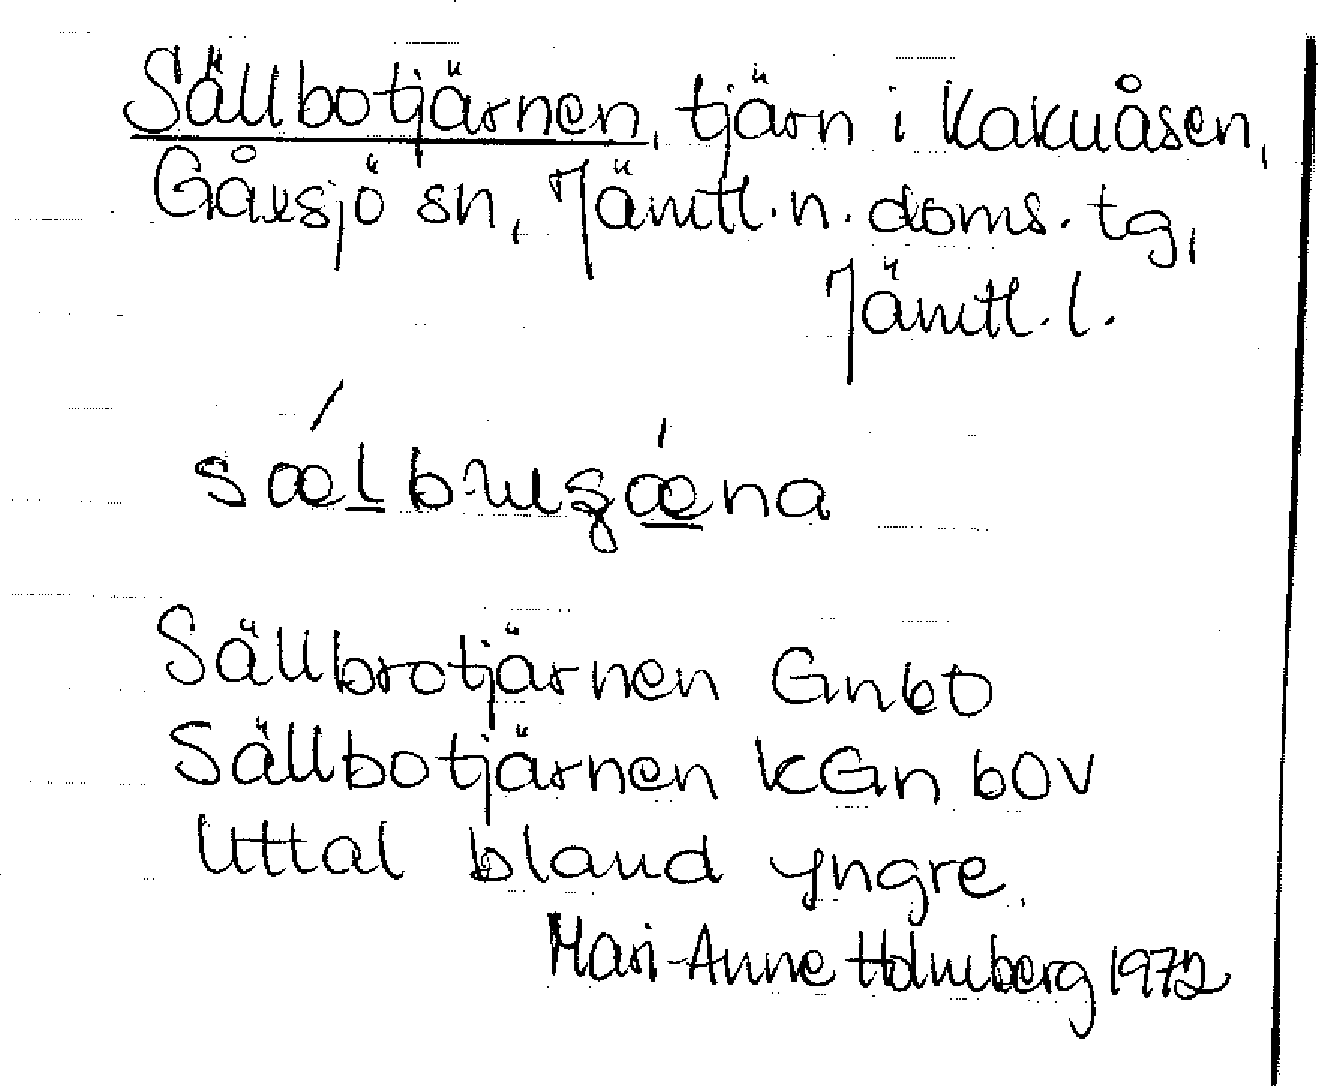 Sällbotjärnen, tjärn i Kakuåsen,
Gåxsjö sn, Jämtl. n. doms. tg,
Jämtl. l.
Sällbrotjärnen Gnb0
Sällbotjärnen kGn 60V
Uttal bland yngre.
Mari-Anne Holmberg 1972